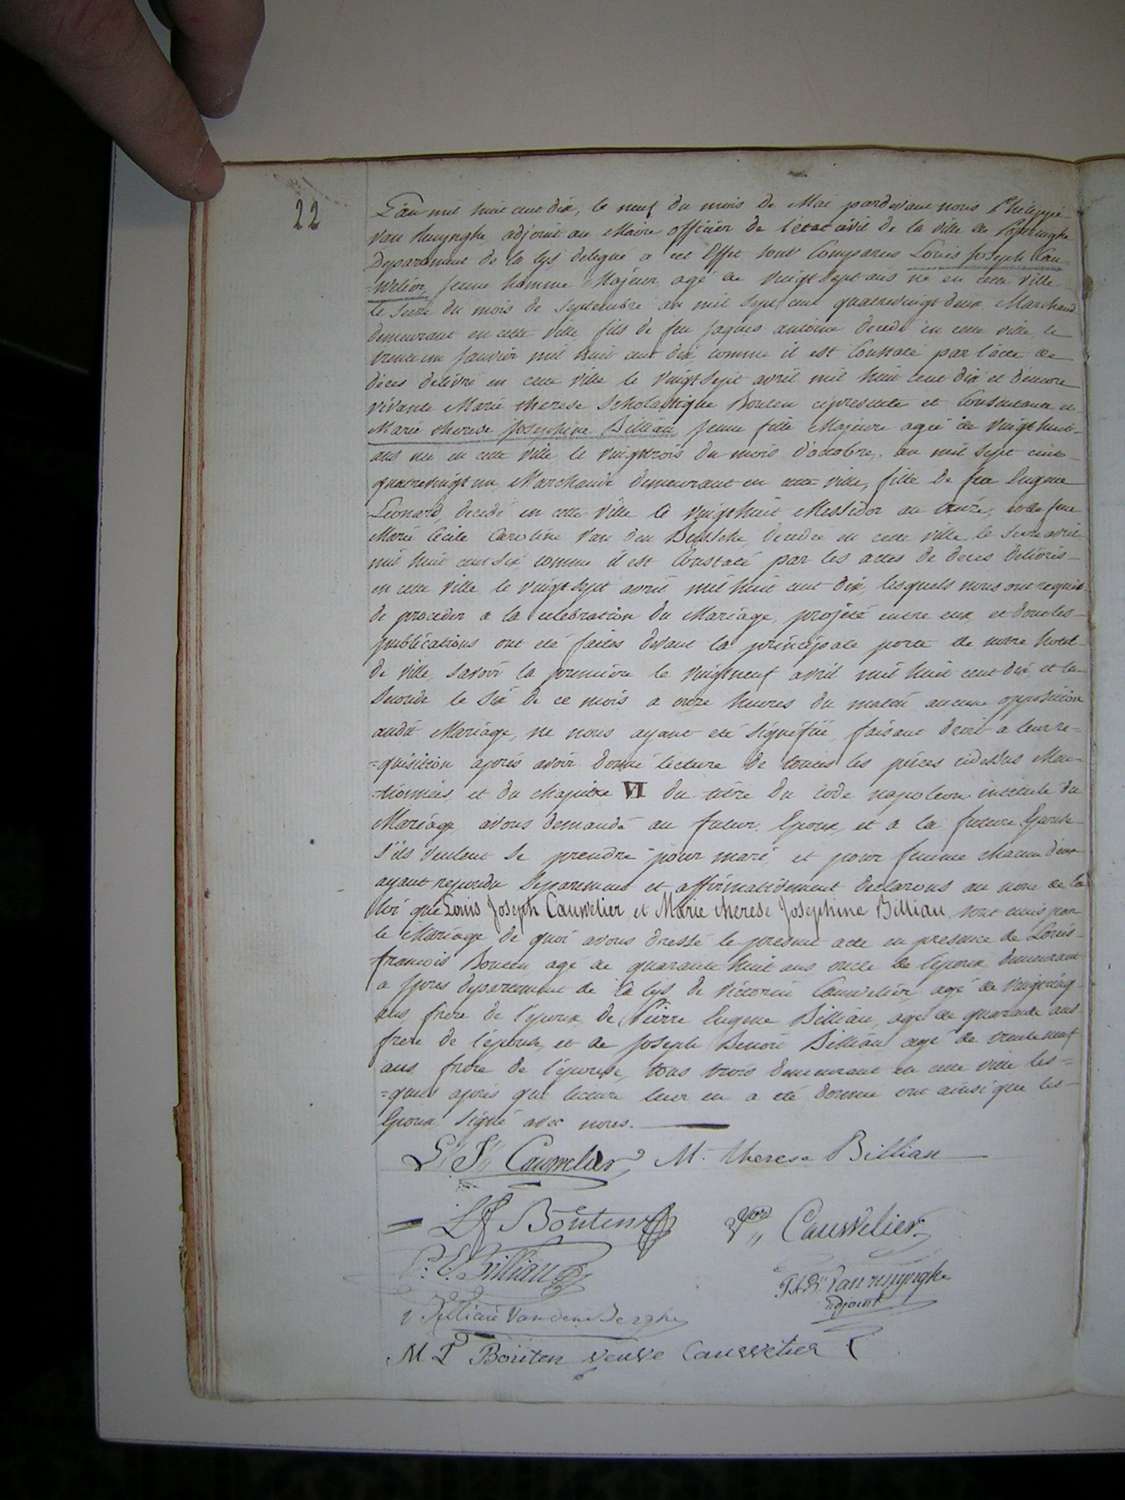 22
L'an mil huit cent dix, le neuf du mois de Mai pardevant nous Philippe
Van Renynghe adjoint au Maire officier de l'état civil de la ville de Poperinghe
Departement de la Lys delegué a cet Effet sont Comparus Louis Joseph Cau-
=welier, jeune homme Majeur agé de vingt sept ans né en cette ville
le seize du mois de septembre an mil sept cent quatrevingt deux, Marchand
demeurant en cette ville fils de feu jaques antoine decedé en cette ville le
trente un janvier mil huit cent dix comme il est Constaté par l'acte de
décès delivré en cette ville le vingt sept avril mil huit cent dix et d'encore
vivante Marie therese Scholastique Bouten cipresente et Consentante et
Marie therese josephine Billiau jeune fille Majeure agée de vingt huit
ans née en cette ville le vingt trois du mois d'octobre, an mil sept cent
quatrevingt un, Marchande demeurant en cette ville, fille de feu Eugene
Leonard decedé en cette ville le vingt huit Messidor an treize, et de feue
Marie Cécile Caroline Van den decedée en cette ville le seize avril
mil huit cent six comme il est Constaté par les actes de deces delivrés
en cette ville le vingt sept avril mil huit cent dix, lesquels nous ont requis
de proceder a la celebration du Mariage, projeté entre eux et dont les
publications ont été faites devant la principale porte de notre hotel
de ville, savoir la premiere le vingt neuf avril mil huit cent dix et la
Seconde le six de ce mois a onze heures du matin aucune opposition
audit Mariage, ne nous ayant eté signifiée, faisant droit a leur re-
=quisition après avoir donné lecture de toutes les pièces cidessus Men-
=tionnées et du chapitre VI du titre du code napoleon intitulé du
Mariage, avons demandé au futur Epoux et a la future Epouse
s'ils veulent se prendre pour mari et pour femme chacun d'eux
ayant repondu separement et affirmativement declarons au nom de la
loi que Louis Joseph Cauwelier et Marie therese Josephine Billiau, sont unis par
le Mariage de quoi avons dressé le present acte en presence de Louis
francois Bouten agé de quarante huit ans oncle de l'époux demeurant
a Ypres departement de la Lys de Victorin Cauwelier agé de vingt cinq
ans frere de l'époux, de Pierre Eugene Billiau, agé de quarante ans
frere de l'épouse, et de joseph Benoit Billiau agé de trente neuf
ans frere de l'épouse, tous trois demeurant en cette ville les-
=quels après que lecture leur en a été donnée ont ainsi que les
Epoux signé avec nous.
L. J. Cauwelier M. therese Billiau
L f Bouten Vor Cauwelier
P. E. Billiau
P. Van renynghe
adjoint
Billiau Vanden Berghe
M T Bouten veuve Cauwelier